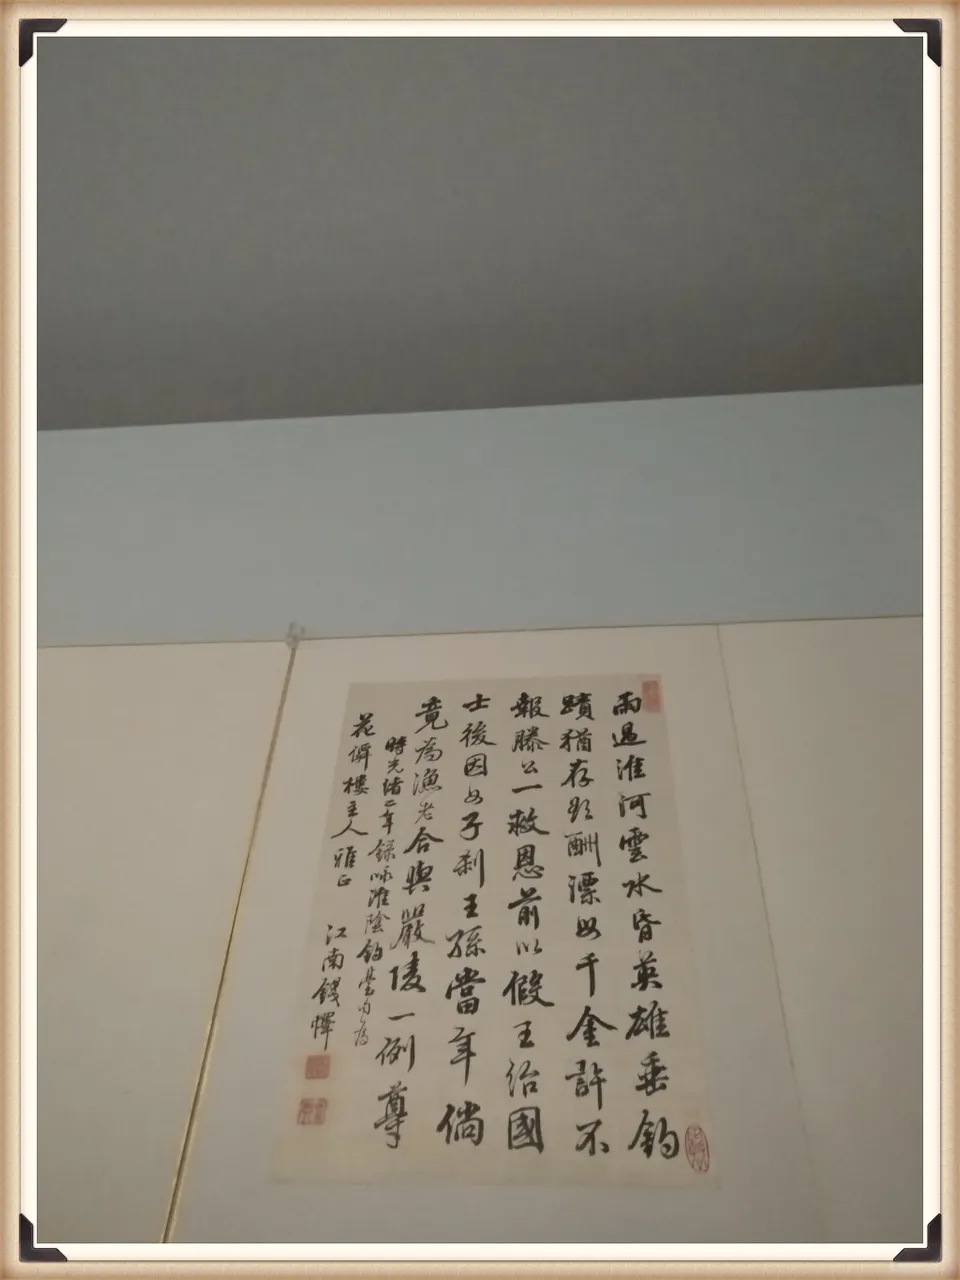 雨過淮河雲水昏英雄垂釣
蹟猶存欲酬漂母千金許不
報滕公一救恩前以假王紿國
士後因女子刹王孫當年倘
竟為漁老合與嚴陵一例尊
時光緒二年錄咏淮陰釣臺句為
花樓主人雅正
江南